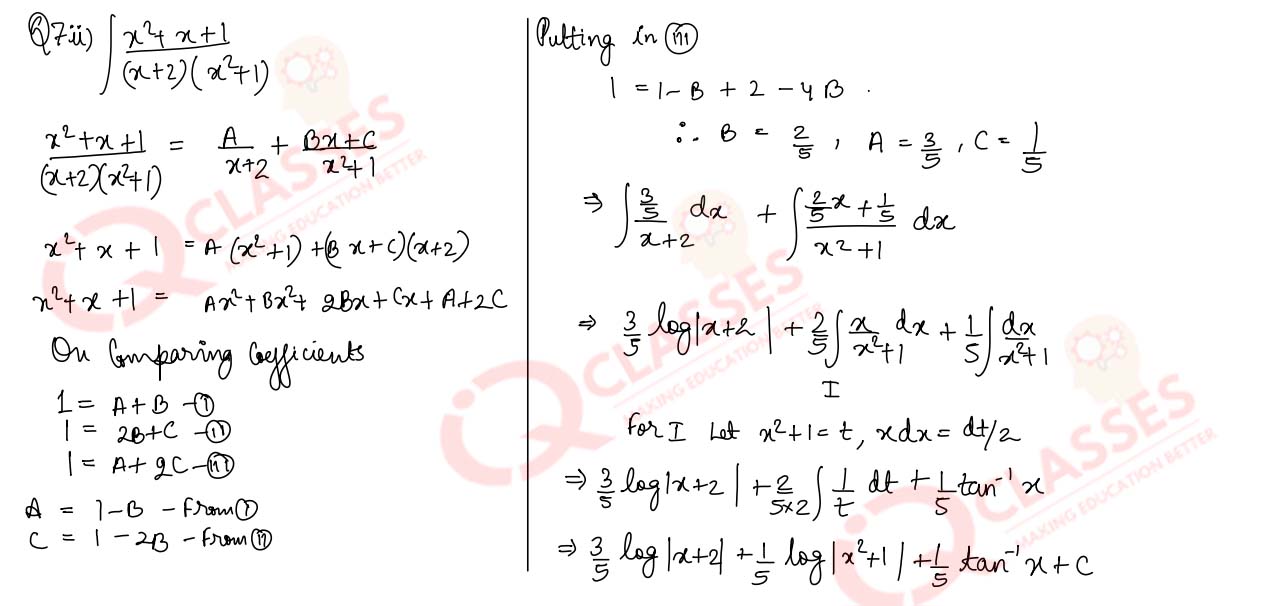 Q7ii) ∫ x²+x+1 / (x+2)(x²+1)
x²+x+1 / (x+2)(x²+1) = A / x+2 + Bx+C / x²+1
x²+x+1 = A(x²+1)+(Bx+C)(x+2)
x²+x+1 = Ax²+Bx²+2Bx+Cx+A+2C
On Comparing Coefficients
1 = A+B -(I)
1 = 2B+C -(II)
1 = A+2C -(III)
A = 1-B - From (I)
C = 1-2B - From (II)
Putting in (III)
1 = 1-B+2-4B
∴ B = 2/5, A = 3/5, C = 1/5
⇒ ∫ 3/5 / x+2 dx + ∫ 2/5 x + 1/5 / x²+1 dx
⇒ 3/5 log|x+2| + 2/5 ∫ x / x²+1 dx + 1/5 ∫ dx / x²+1
I
For I Let x²+1=t, xdx=dt/2
⇒ 3/5 log|x+2| + 2 / 5×2 ∫ 1/t dt + 1/5 tan⁻¹x
⇒ 3/5 log|x+2| + 1/5 log|x²+1| + 1/5 tan⁻¹x+C
CLASSES
MAKING EDUCATION BETTER
CLASSES
MAKING EDUCATION BETTER
CLASSES
MAKING EDUCATION BETTER